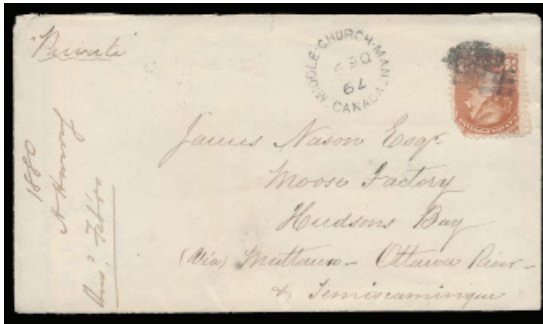 "Private"
MIDDLE·CHURCH·MAN.
DE 9
79
CANADA
James Nason Esqr
Moose Factory
Hudsons Bay
(Via) Mattawa - Ottawa River -
& Temiscamingue
1880